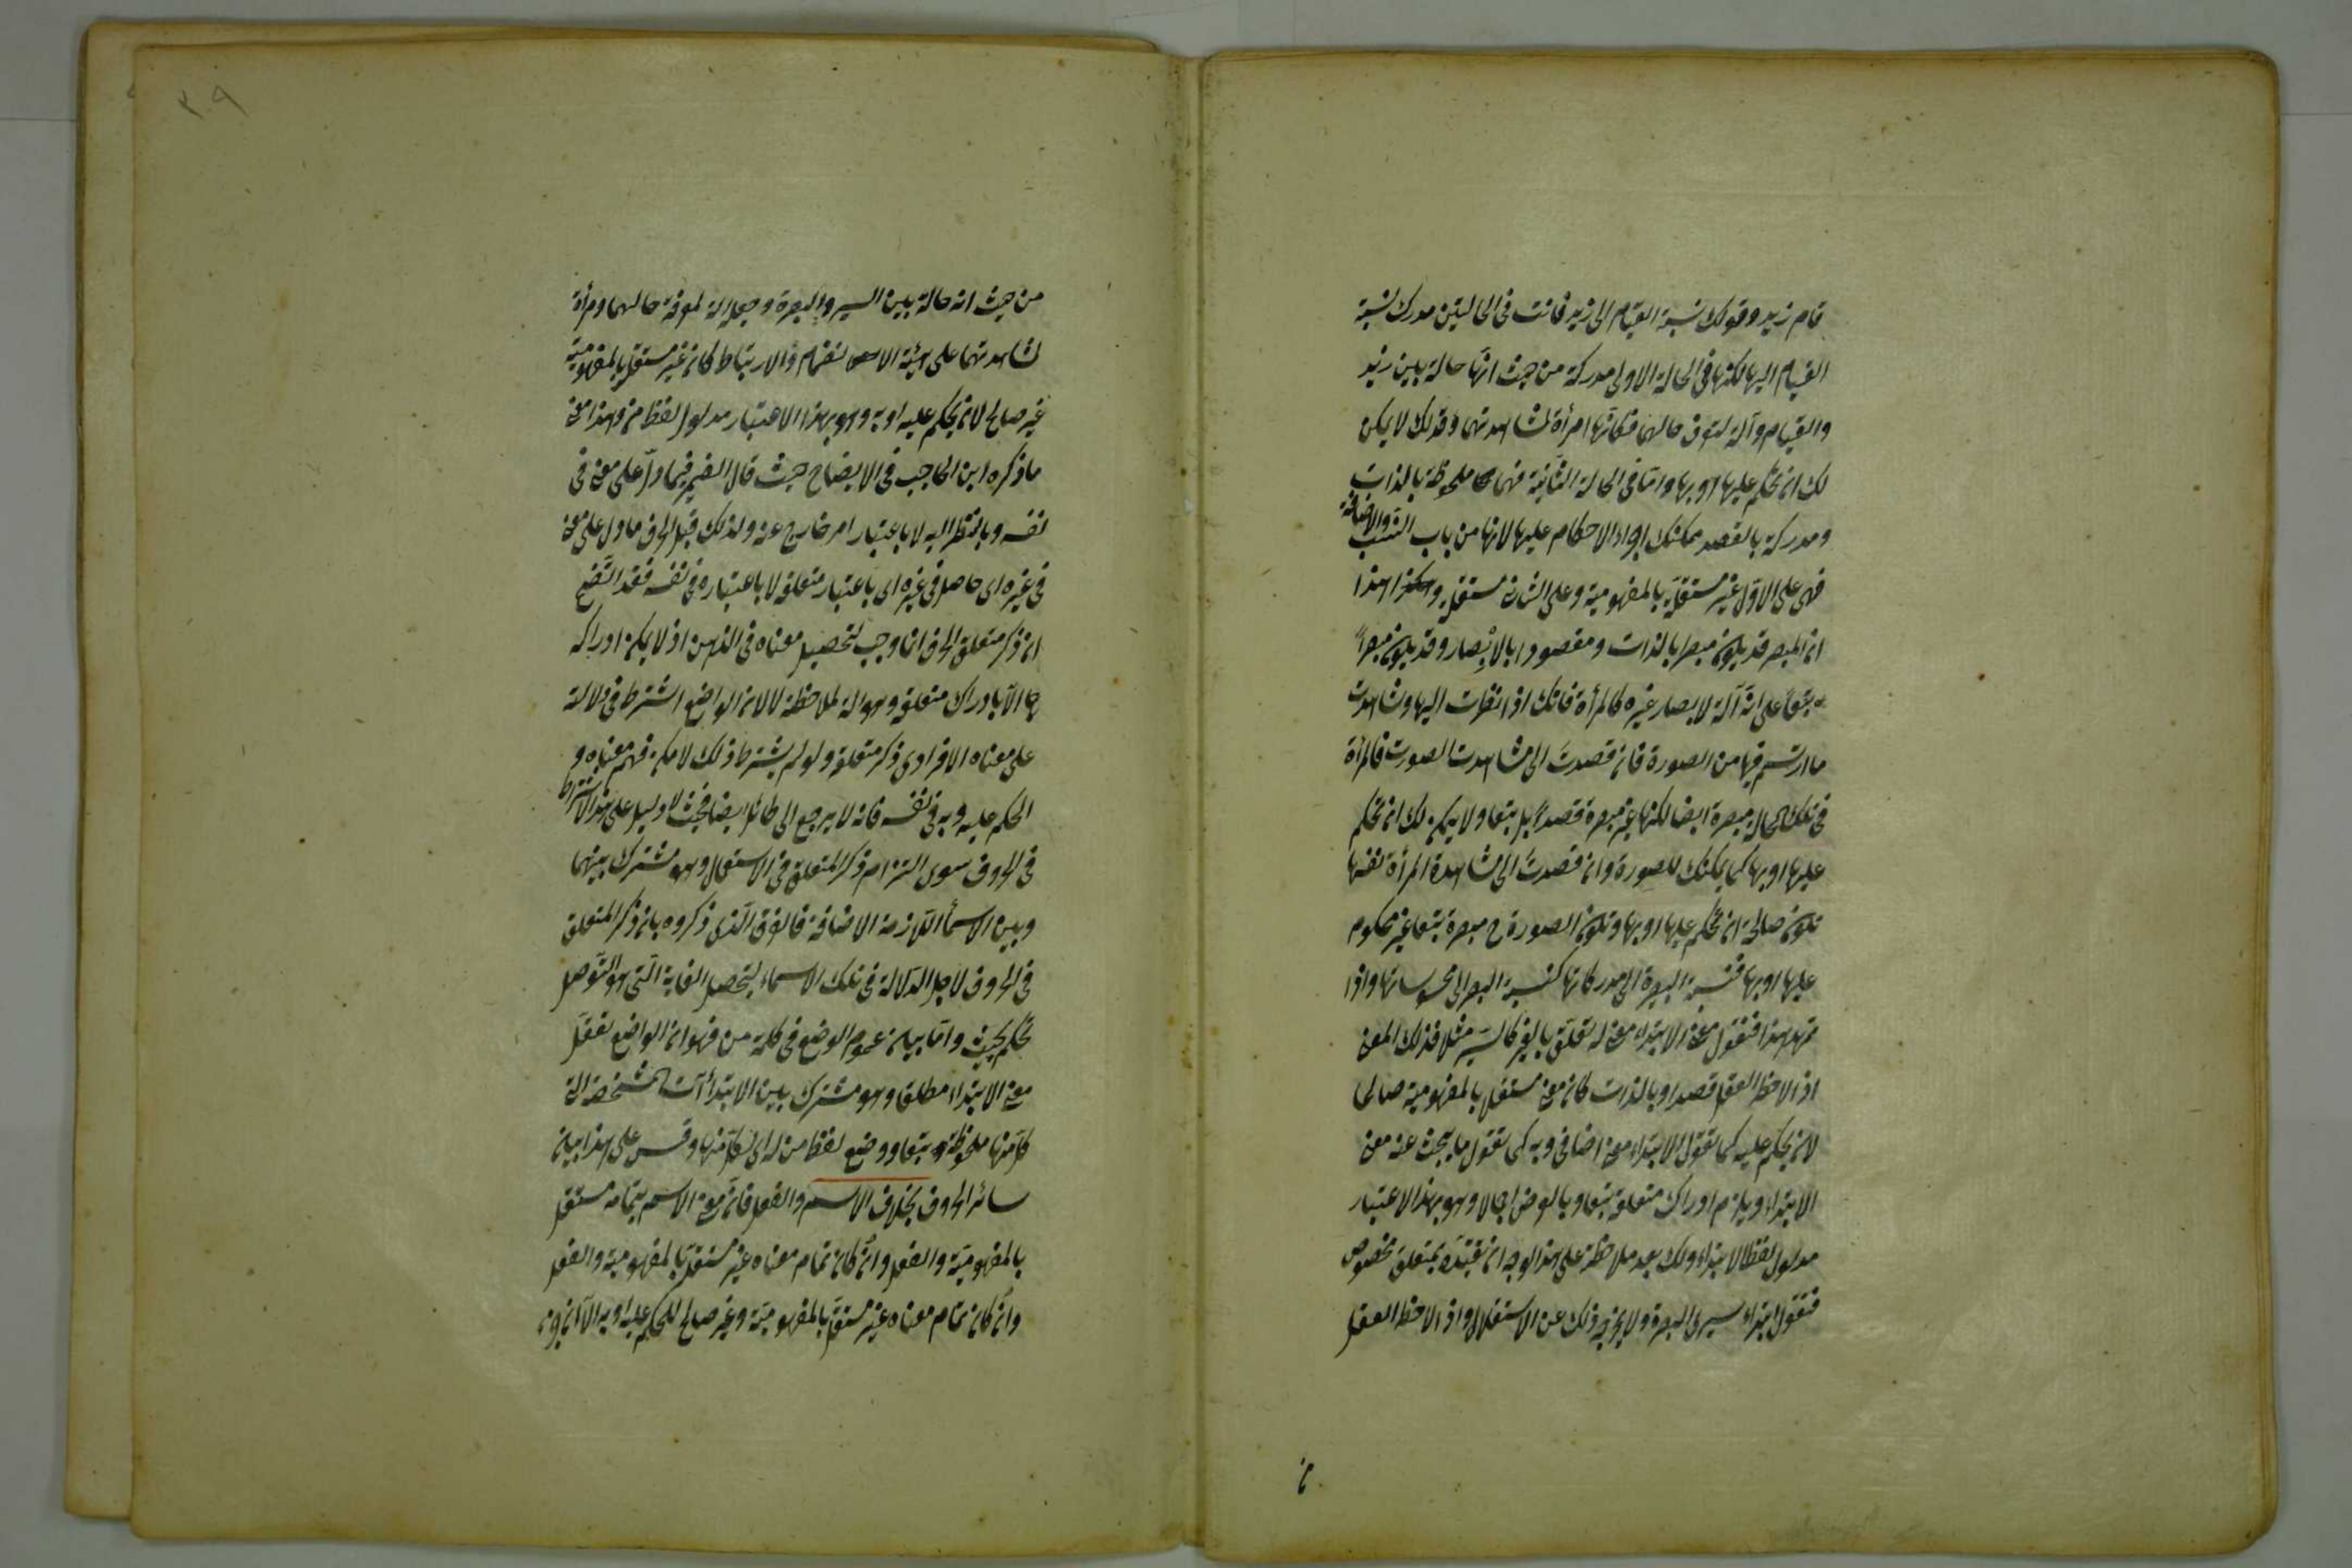 قام زيد وقولك نسبة القيام الى زيد فانت فى الحالتين مدرك نسبة
القيام اليها لكنها فى الحالة الاولى مدركة من حيث انّها حالة بين زيد
والقيام وآلة لتعرف حالهما فكانها امرأة لمشاهدتهما وقذلك لا يمكن
لك ان تحكم عليها او بها واما فى الحالة الثانية فهى ملحوظة بالذات
ومدركة بالقصد يمكنك اجراء الاحكام عليها لانها من باب النسب والاضافة
فهى على الاول غير مستقلة بالمفهومية وعلى الثانى مستقلة وهكذا
ان المبصر قد يكون مبصرا بالذات ومقصودا بالابصار وقد يكون مبصراً
تبعاً على انّه آلة لابصار غيره كالمرأة فانك اذا نظرت اليها وشاهدت
ما ارتسم فيها من الصورة فان قصدت الى مشاهدت الصورت فالمرأة
فى تلك الحالة مبصرة ايضا لكنها غير مبصرة قصداً بل تبعا ولا يمكن لك ان تحكم
عليها او بها كما يمكنك للصورة وان قصدت الى مشاهدة المرأة نفسها
تكون صالحة ان تحكم عليها او بها وتكون الصورة ح مبصرة تبعا غير محكوم
عليها او بها فنسبة البصيرة الى مدركاتها كنسبة البصر الى محسوساتها واذا
تمهد هذا فنقول معنى الابتداء معنى له تعلّق بالغير كالسير مثلا فذلك المعنى
اذا لاحظه العقل قصدا وبالذات كان معنى مستقل بالمفهومية صالحا
لان يحكم عليه كما تقول الابتداء معنى اضافى وبه كما تقول ما يبحث عنه معنى
الابتداء ويلزم ادراك متعلقه تبعا وبالعرض اجمالا وهو بهذا الاعتبار
مدلول لفظ الابتداء ولك بعد ملاحظة على هذا الوجه ان تقيّده بمتعلق مخصوص
فتقول ابتداء سيرى البصرة ولا يخرجه ذلك عن الاستقلال واذا لاحظ العقل
من حيث انه حالة بين السير والبصرة وجعله آلة لمعرفة حالهما ومرأة
لمشاهدتهما على هيئة الانضمام والارتباط كان غير مستقل بالمفهومية
غير صالح لان يحكم عليه او به وهو بهذا الاعتبار مدلول لفظ من وهذا معنى
ما ذكره ابن الحاجب فى الايضاح حيث قال الضمير فيما دلّ على معنى فى
نفسه وبالنظر اليه لا باعتبار امر خارج عنه ولذلك قيل الحرف ما دل على معنى
فى غيره اى حاصل فى غيره اى باعتبار متعلقه لا باعتباره فى نفسه فقد اتّضح
ان ذكر متعلق الحرف انما وجب لتحصيل معناه فى الذهن اذ لا يمكن ادراكه
الّا بادراك متعلقه وهو آلة لملاحظة لا لان الواضع اشترط فى دلالته
على معناه الافرادى ذكر متعلقه ولو لم يشترط ذلك لا مكن فهم معناه و
الحكم عليه وبه فى نفسه فانه لا يرجع الى طائل ايضا فحيث لا دليل على هذا الاشتراط
فى الحروف سوى التزام ذكر المتعلق فى الاستعمال وهو مشترك بينهما
وبين الاسمأ اللازمة الاضافة فالفرق الّذى ذكروه بان ذكر المتعلق
فى الحروف لاجل الدلالة فى تلك الاسماء لتحصل الغاية الّتى هو التوصل
تحكم بحيث وامّا بيان عموم الوضع فى كلمة من فهو ان الواضع تعقّل
معنى الابتداء مطلق وهو مشترك بين الابتدأآت المشخصة التى
كل منها ملحوظة تبعا ووضع لفظا من له اى لكل منها وقس على هذا بيان
سائر الحروف بخلاف الاسم والفعل فان معنى الاسم بتمامه مستقل
بالمفهوميّة والفعل وان كان تمام معناه غير مستقل بالمفهومية والفعل
وان كان تمام معناه غير مستقل بالمفهوميّة وغير صالح للحكم عليه او به الّا ان جزئه